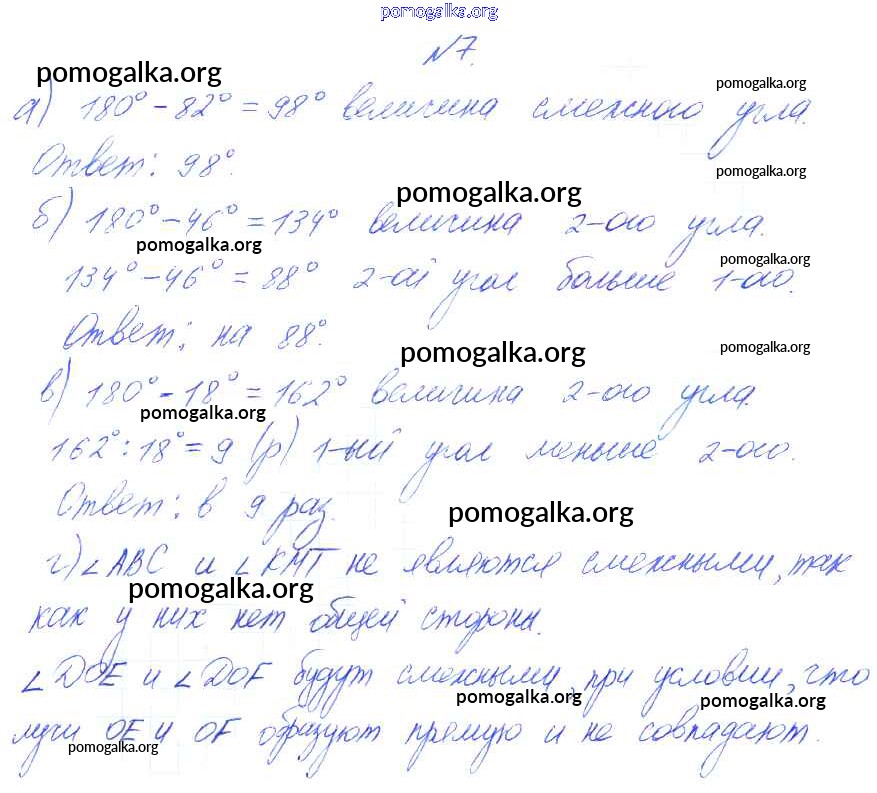 pomogalka.org
№7.
pomogalka.org
pomogalka.org
а) 180° - 82° = 98° величина смежного угла.
Ответ: 98°.
pomogalka.org
pomogalka.org
б) 180° - 46° = 134° величина 2-ого угла.
pomogalka.org
pomogalka.org
134° - 46° = 88° 2-ой угол больше 1-ого.
Ответ: на 88°.
pomogalka.org
pomogalka.org
в) 180° - 18° = 162° величина 2-ого угла.
pomogalka.org
162° : 18° = 9 (р) 1-ый угол меньше 2-ого.
Ответ: в 9 раз.
pomogalka.org
г) ∠ABC и ∠KMT не являются смежными, так
pomogalka.org
как у них нет общей стороны.
∠DOE и ∠DOF будут смежными, при условии, что
pomogalka.org
pomogalka.org
лучи OE и OF образуют прямую и не совпадают.
pomogalka.org